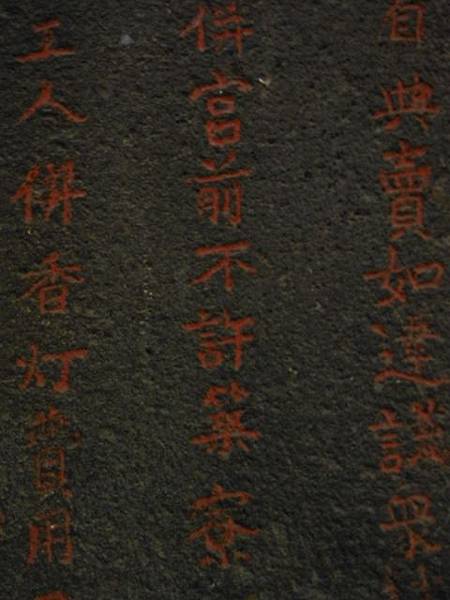 自典賣如違議眾
併宮前不許築寮
工人併香灯費用